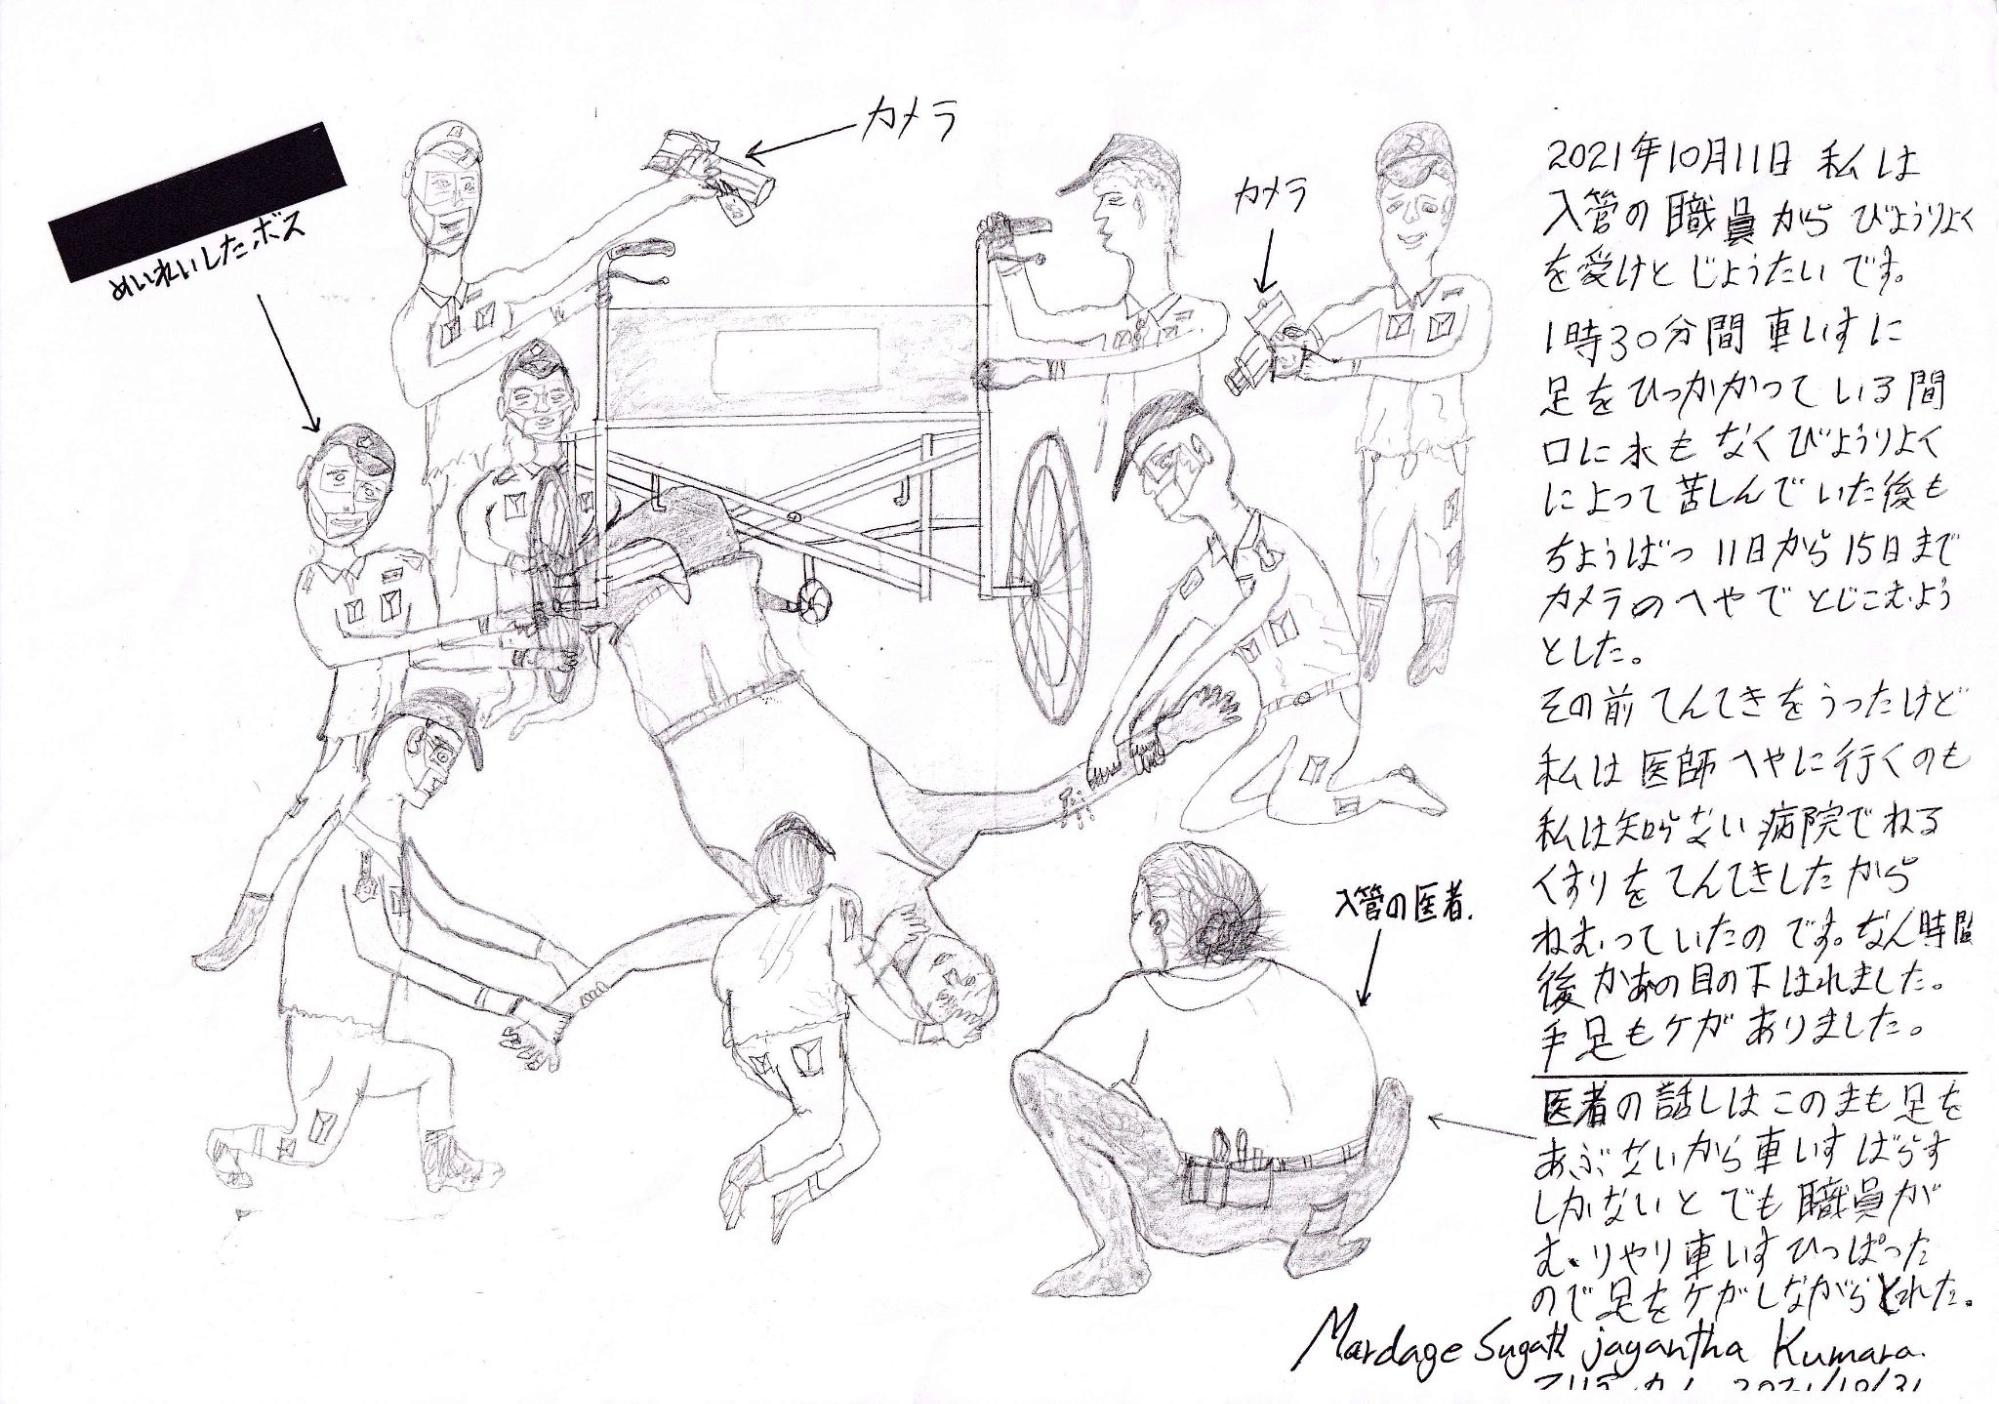 カメラ
めいれいしたボス
カメラ
入管の医者.
2021年10月11日 私は
入管の職員からびょうりょく
を受けとじょうたいです。
1時30分間車いすに
足をひっかかっている間
口に水もなくびょうりよく
によって苦しんでいた後も
ちょうばつ 11日から15日まで
カメラのへやでとじこむよう
とした。
その前てんてきをうったけど
私は医師へやに行くのも
私は知らない病院でねる
くすりをてんてきしたから
ねむっていたのです。なん時間
後かあの目の下はれました。
手足もケガありました。
医者の話しはこのまも足を
あぶないから車いすばらす
しかないと でも職員が
むりやり車いすひっぱった
ので足をケガしながらとれた。
Mardage Sugath jayantha Kumara.
2021/10/31